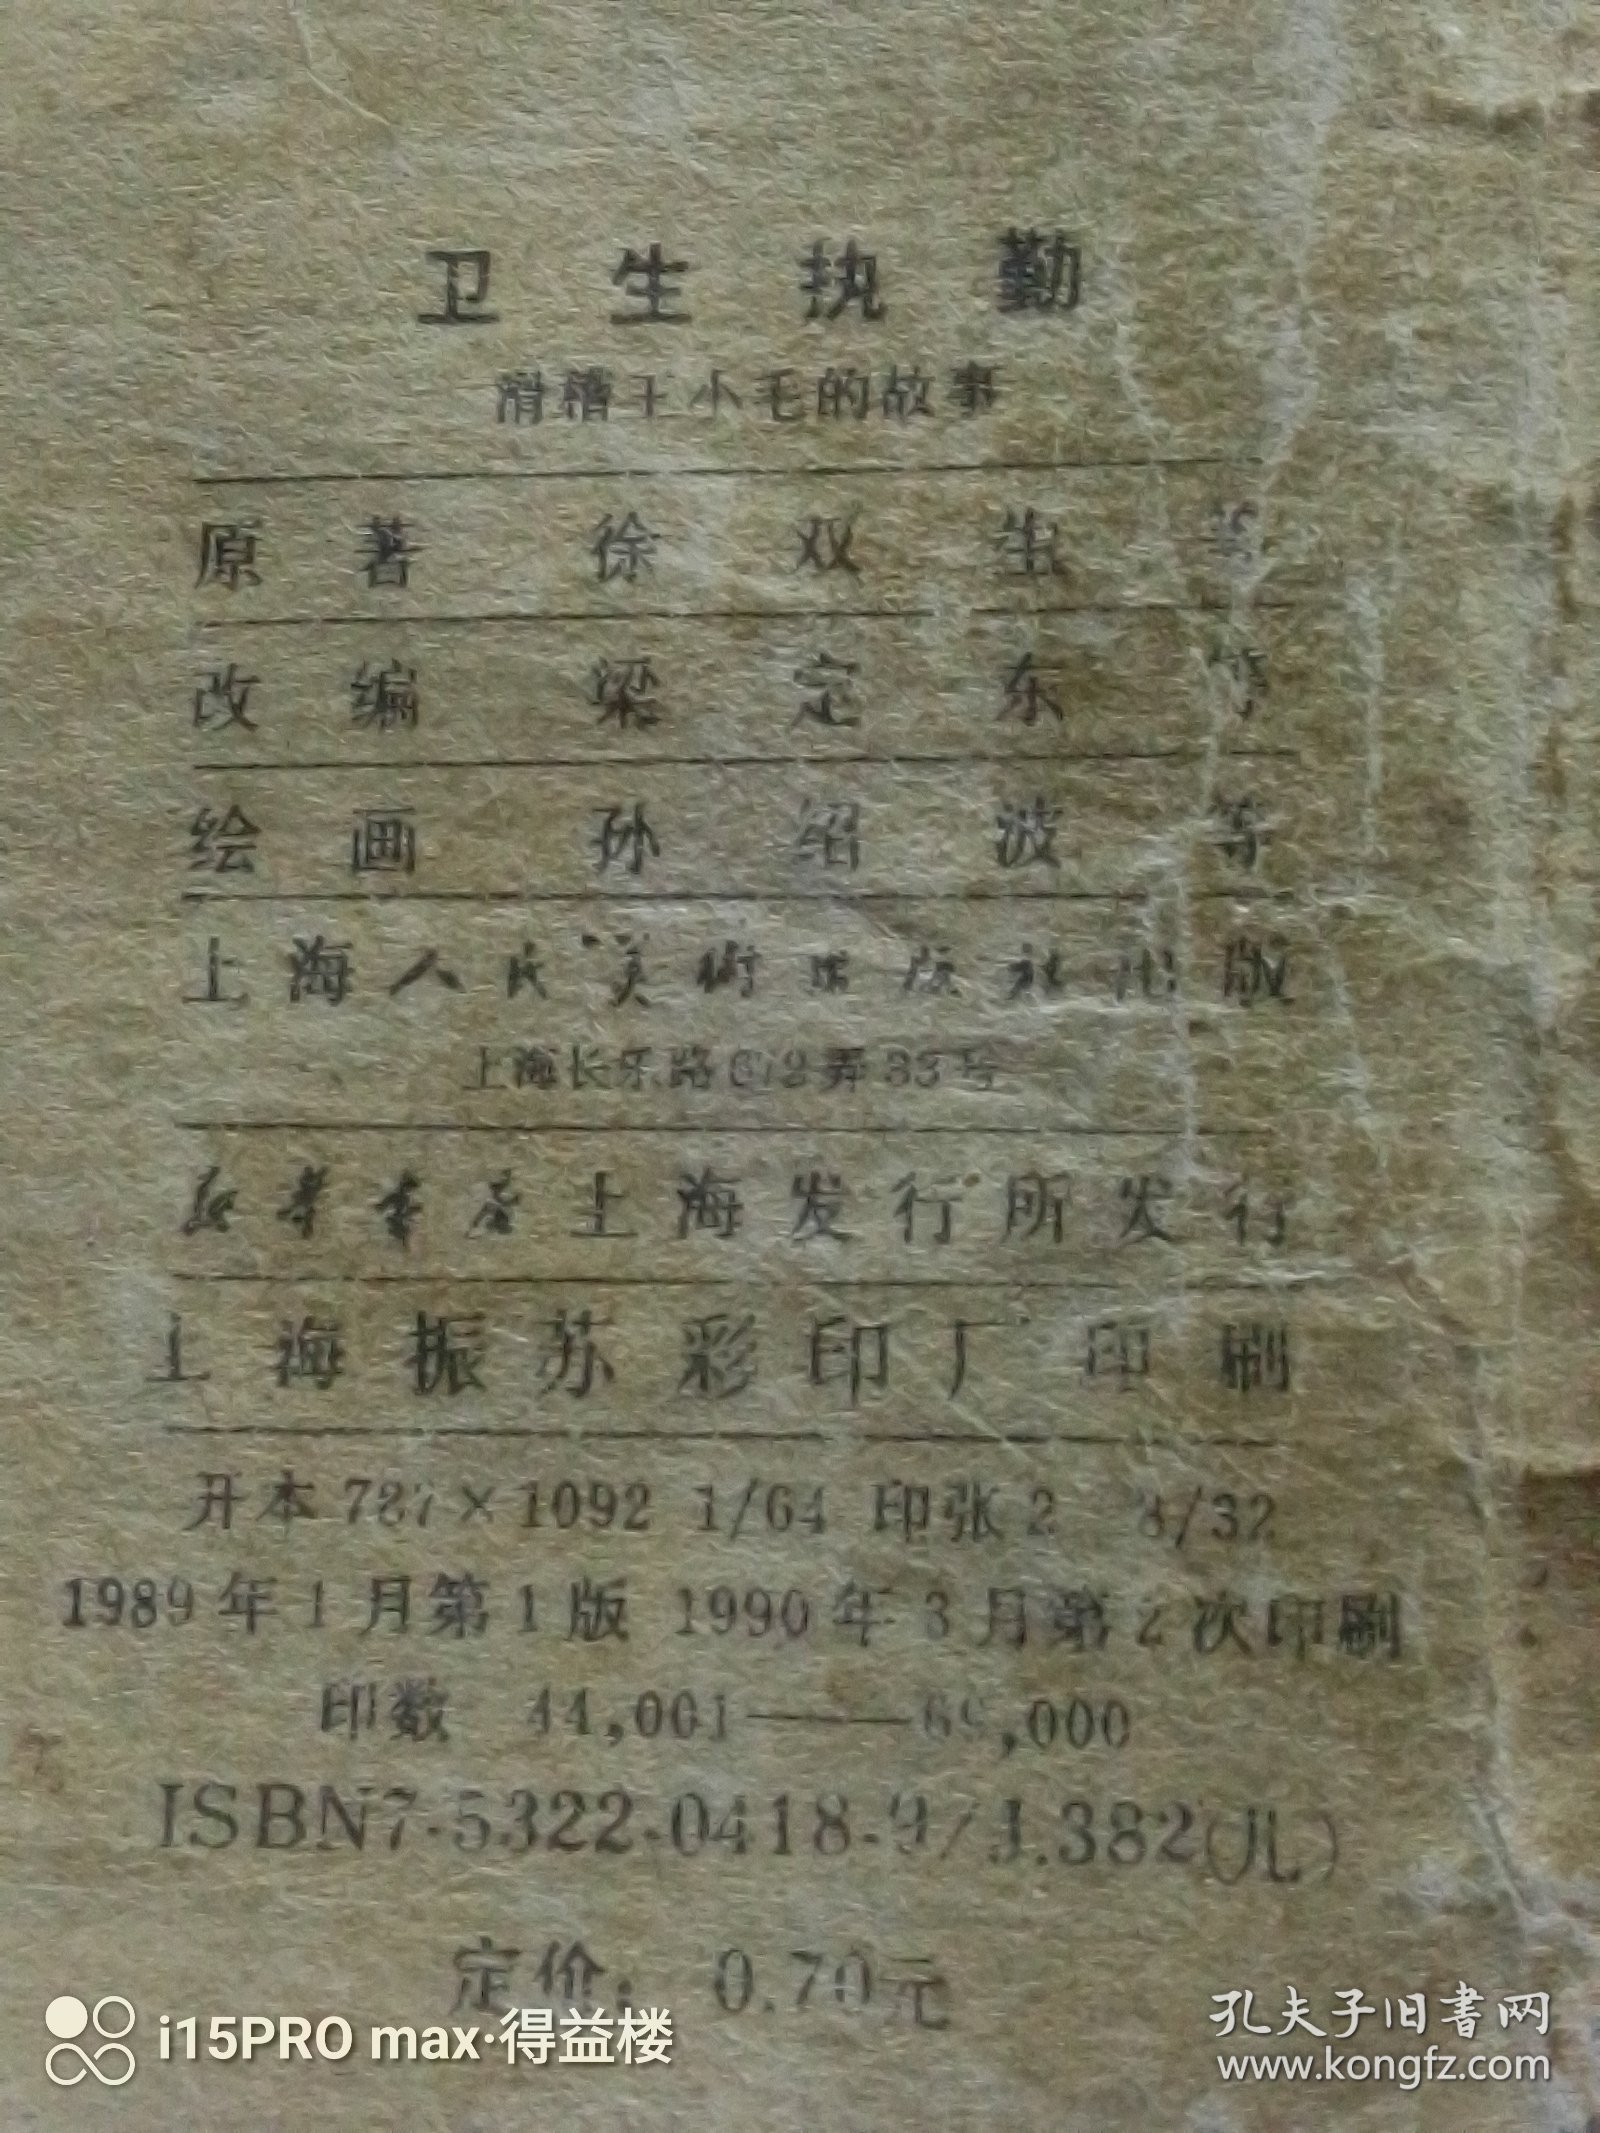 卫生执勤
滑稽王小毛的故事
原著 徐双生等
改编 梁定东等
绘画 孙绍波等
上海人民美術出版社出版
上海长乐路672弄33号
新华书店上海发行所发行
上海振苏彩印厂印刷
开本 787×1092 1/64 印张 2 8/32
1989年1月第1版 1990年3月第2次印刷
印数 44,001——69,000
ISBN7-5322-0418-9/J.382(儿)
定价： 0.70元
i15PRO max·得益楼
孔夫子旧書网
www.kongfz.com